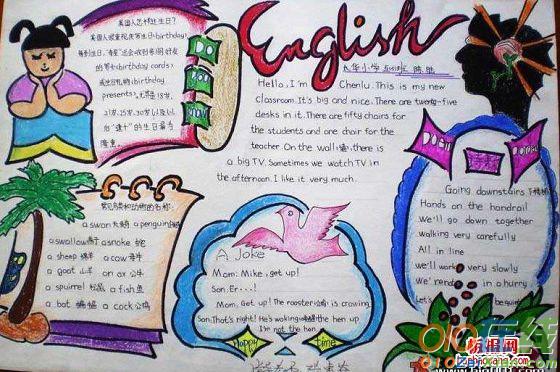 English
美国人怎样过生日?
美国人很重视生日(birthday)
的贺卡(birthday cards)
或生日礼物(birthday
presents).尤其是18岁、
21岁、25岁、30岁以及以
后"逢十"的生日最为
隆重.
DO
YOU
Hello, I'm Chenlu. This is my new
classroom. It's big and nice. There are twenty-five
desks in it. There are fifty chairs for
the students and one chair for the
teacher. On the wall(墙), there is
a big TV. Sometimes we watch TV in
the afternoon. I like it very much.
常见鸟类和动物的名称:
a swan 天鹅 a penguin
a swallow 燕子 a snake 蛇
a sheep 绵羊 a cow 母牛
a goat 山羊 an ox 公牛
a squirrel 松鼠 a fish 鱼
a bat 蝙蝠 a cock 公鸡
A Joke
Mom: Mike, get up!
Son: Er...!
Mom: Get up! The rooster(公鸡) is crowing
Son: That's right! He's waking the hen up
I'm not the hen.
Happy time
Going downstairs 下楼梯
Hands on the handrail
We'll go down together
walking very carefully
All in line
we'll work very slowly
We' in a hurry
Let's